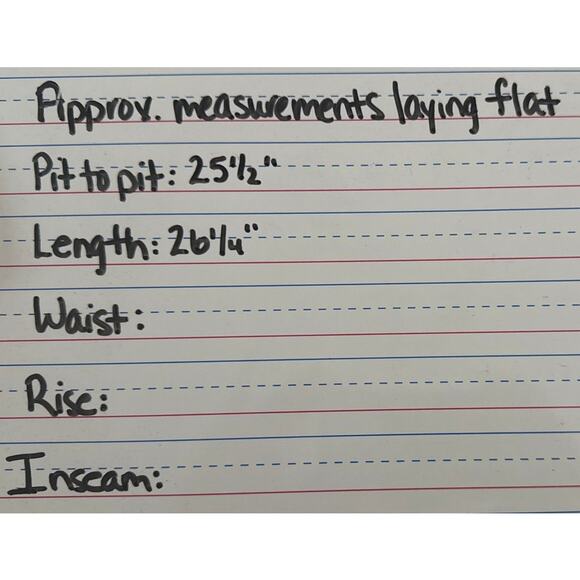 Approx. measurements laying flat
Pit to pit: 25 1/2"
Length: 26 1/4"
Waist:
Rise:
Inseam: